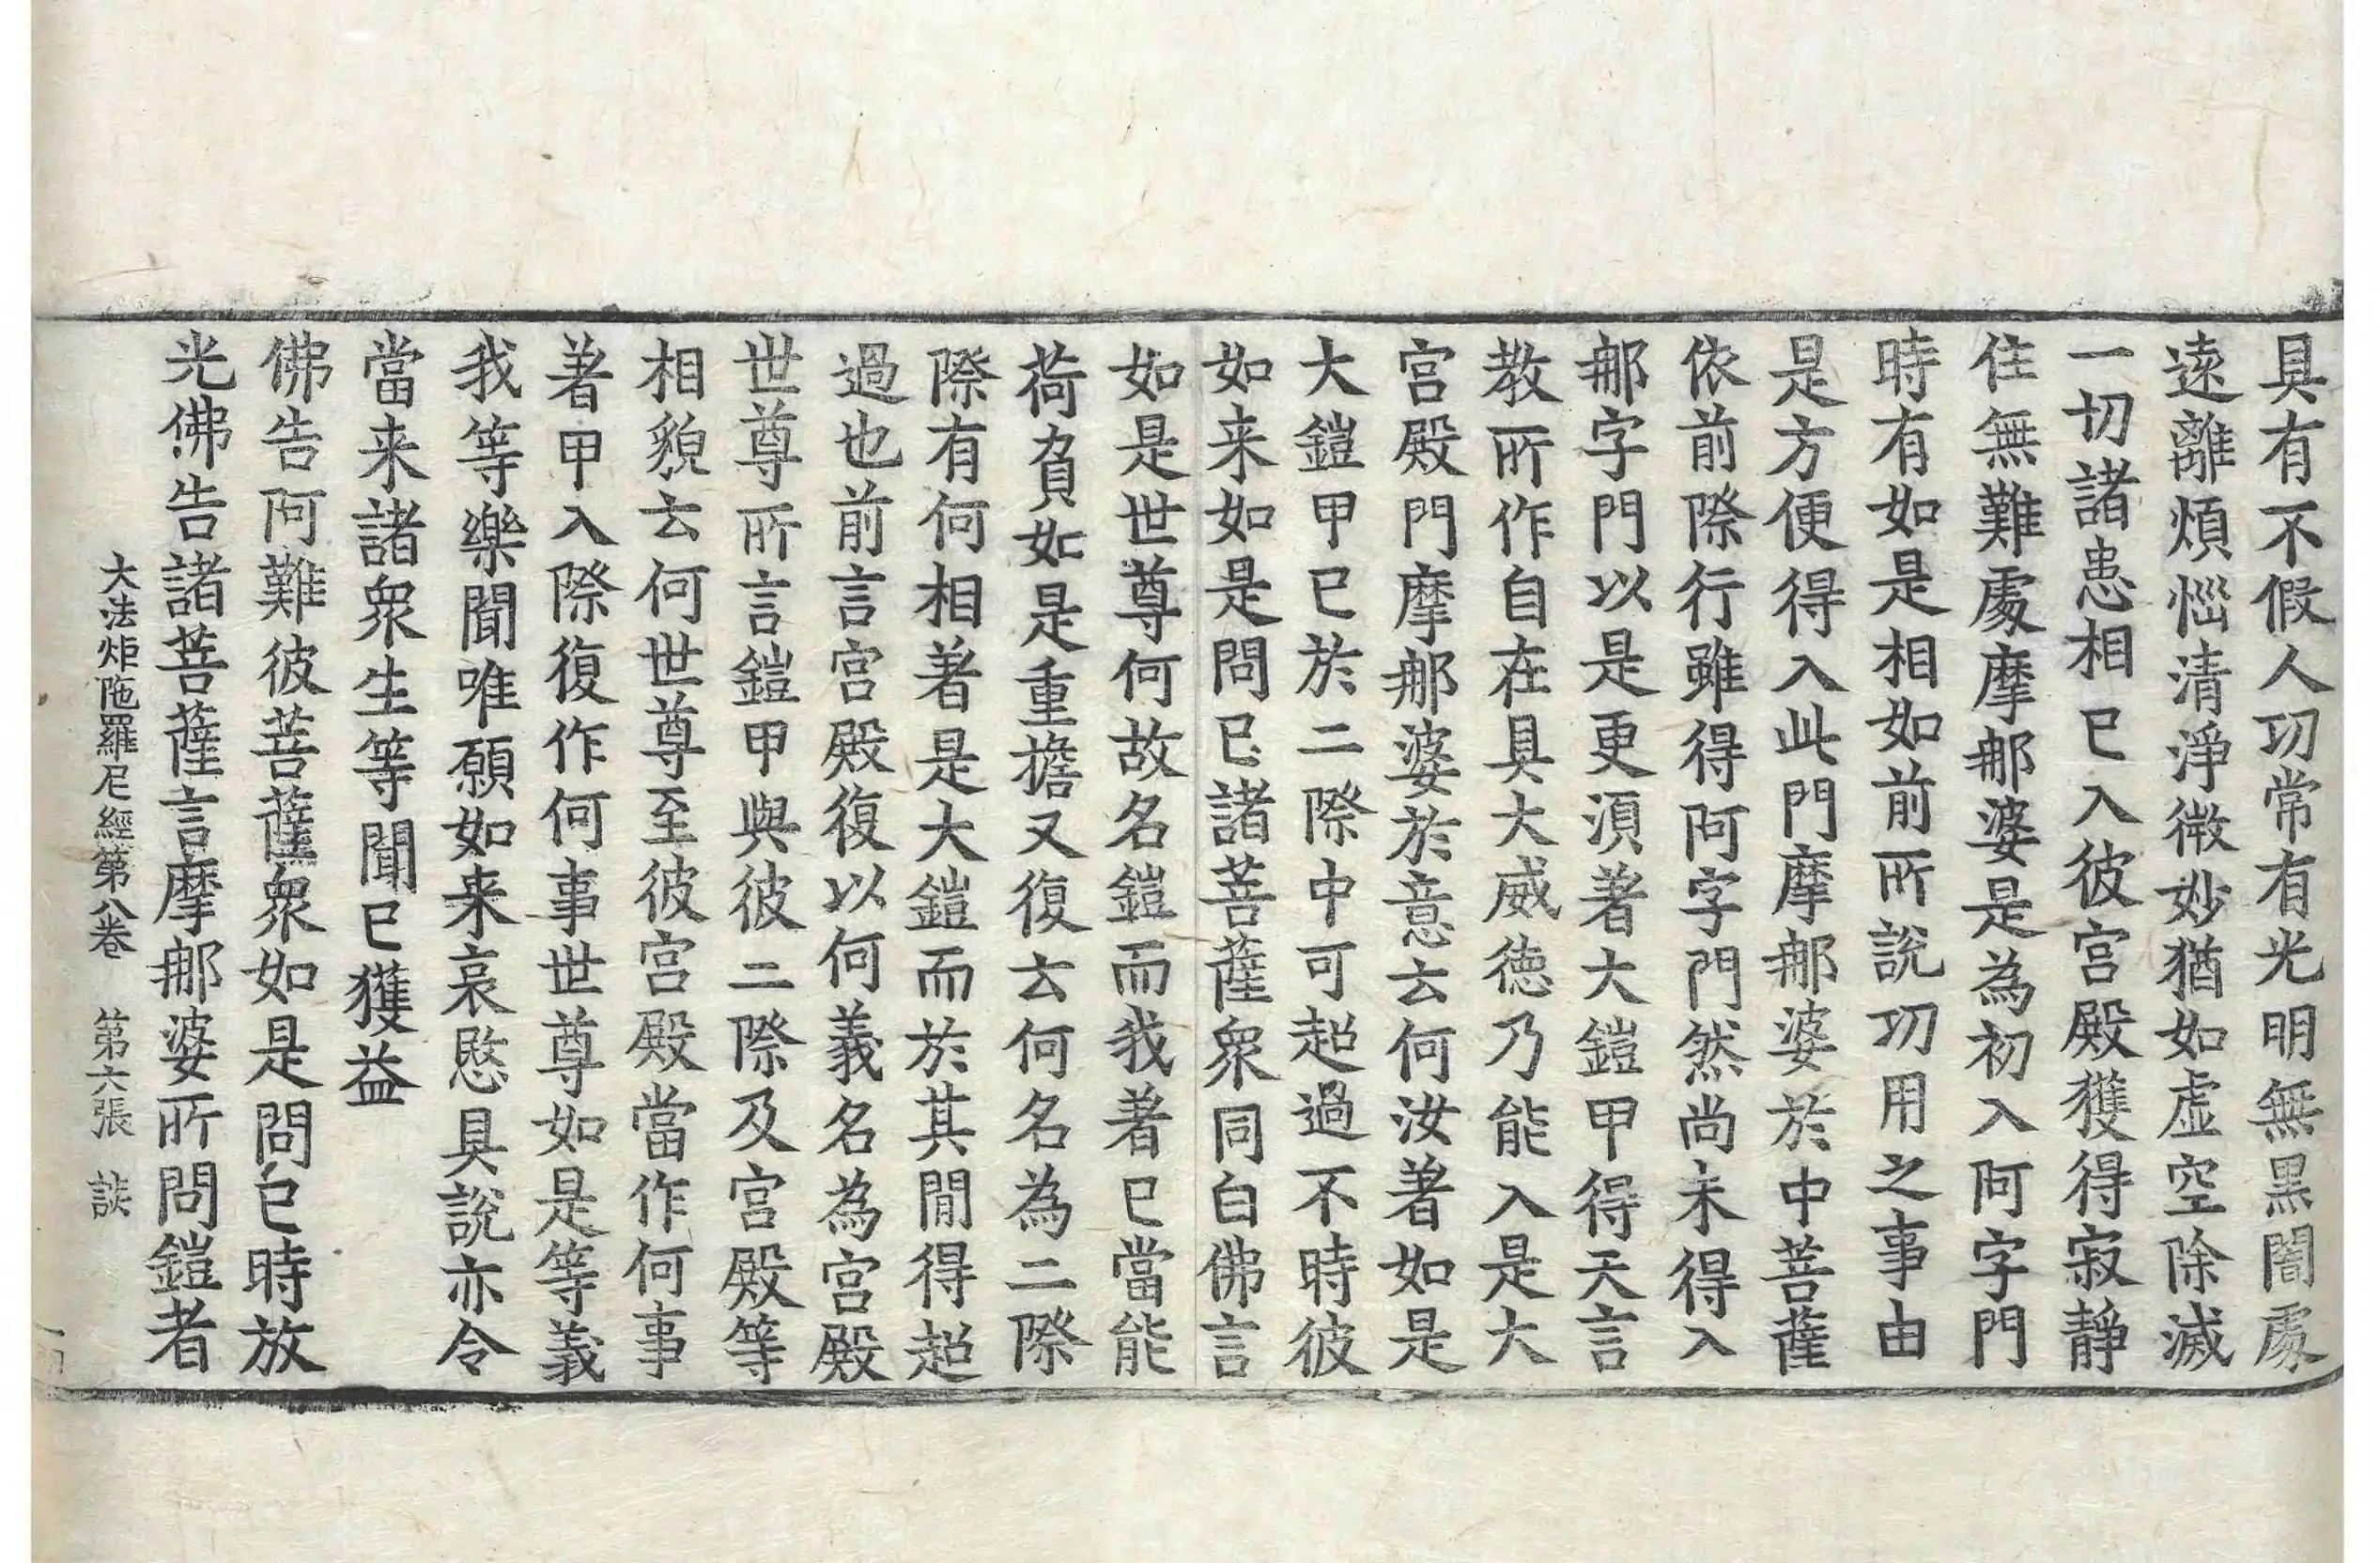 具有不假人功常有光明無黒闇處
遠離煩惱清淨微妙猶如虛空除滅
一切諸患相已入彼宮殿獲得寂靜
住無難處摩那婆是為初入阿字門
時有如是相如前所說功用之事由
是方便得入此門摩那婆於中菩薩
依前際行雖得阿字門然尚未得入
那字門以是更須著大鎧甲得天言
教所作自在具大威徳乃能入是大
宮殿門摩那婆於意云何汝著如是
大鎧甲已於二際中可超過不時彼
如来如是問已諸菩薩衆同白佛言
如是世尊何故名鎧而我著已當能
荷負如是重擔又復云何名為二際
際有何相著是大鎧而於其間得超
過也前言宮殿復以何義名為宮殿
世尊所言鎧甲與彼二際及宮殿等
相貌云何世尊至彼宮殿當作何事
著甲入際復作何事世尊如是等義
我等樂聞唯願如来哀愍具說亦令
當来諸衆生等聞已獲益
佛告阿難彼菩薩衆如是問已時放
光佛告諸菩薩言摩那婆所問鎧者
大法炬陁羅尼經第八卷 第六張 談